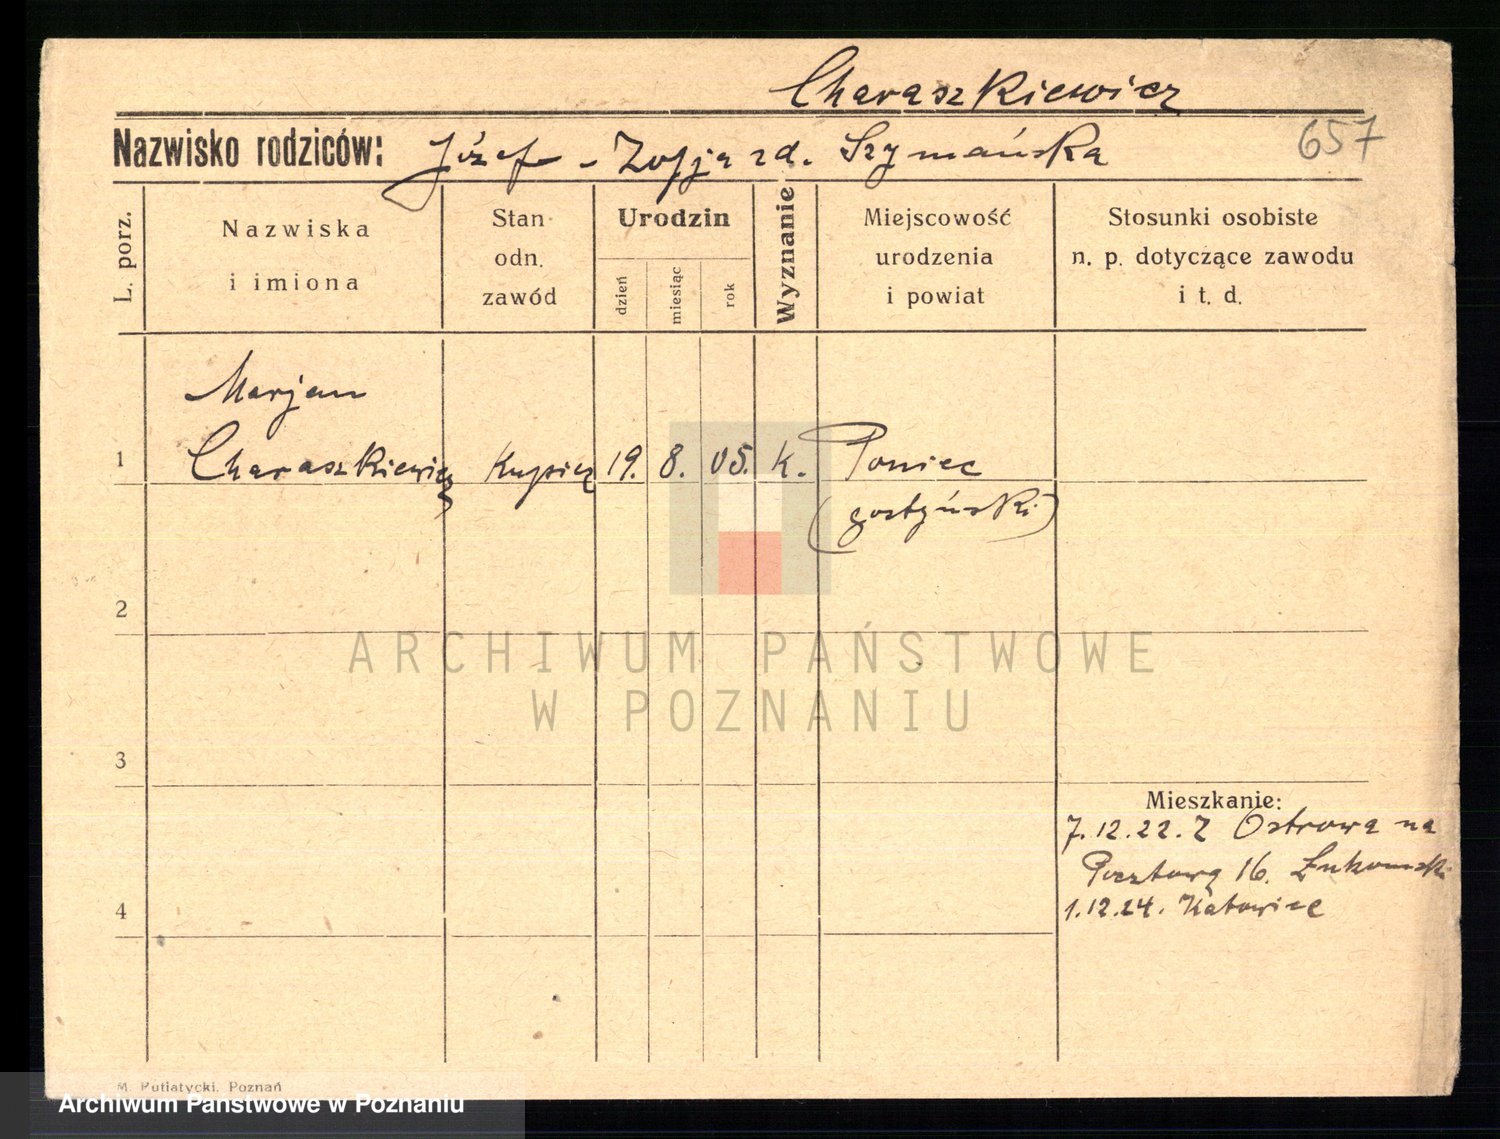 Charaszkiewicz
Nazwisko rodziców: Józef - Zofja zd. Szymańska
657
L. porz.
Nazwiska
i imiona
Stan
odn.
zawód
Urodzin
dzień
miesiąc
rok
Wyznanie
Miejscowość
urodzenia
i powiat
Stosunki osobiste
n. p. dotyczące zawodu
i t. d.
Marjan
1 Charaszkiewicz Kupiec 19. 8. 05. k. Poniec
(gostyński)
2
ARCHIWUM PAŃSTWOWE
W POZNANIU
3
Mieszkanie:
7.12.22. Z Ostrowa na
Pocztową 16. Żukowski
4 1.12.24. Katowice
M. Putiatycki, Poznań
Archiwum Państwowe w Poznaniu